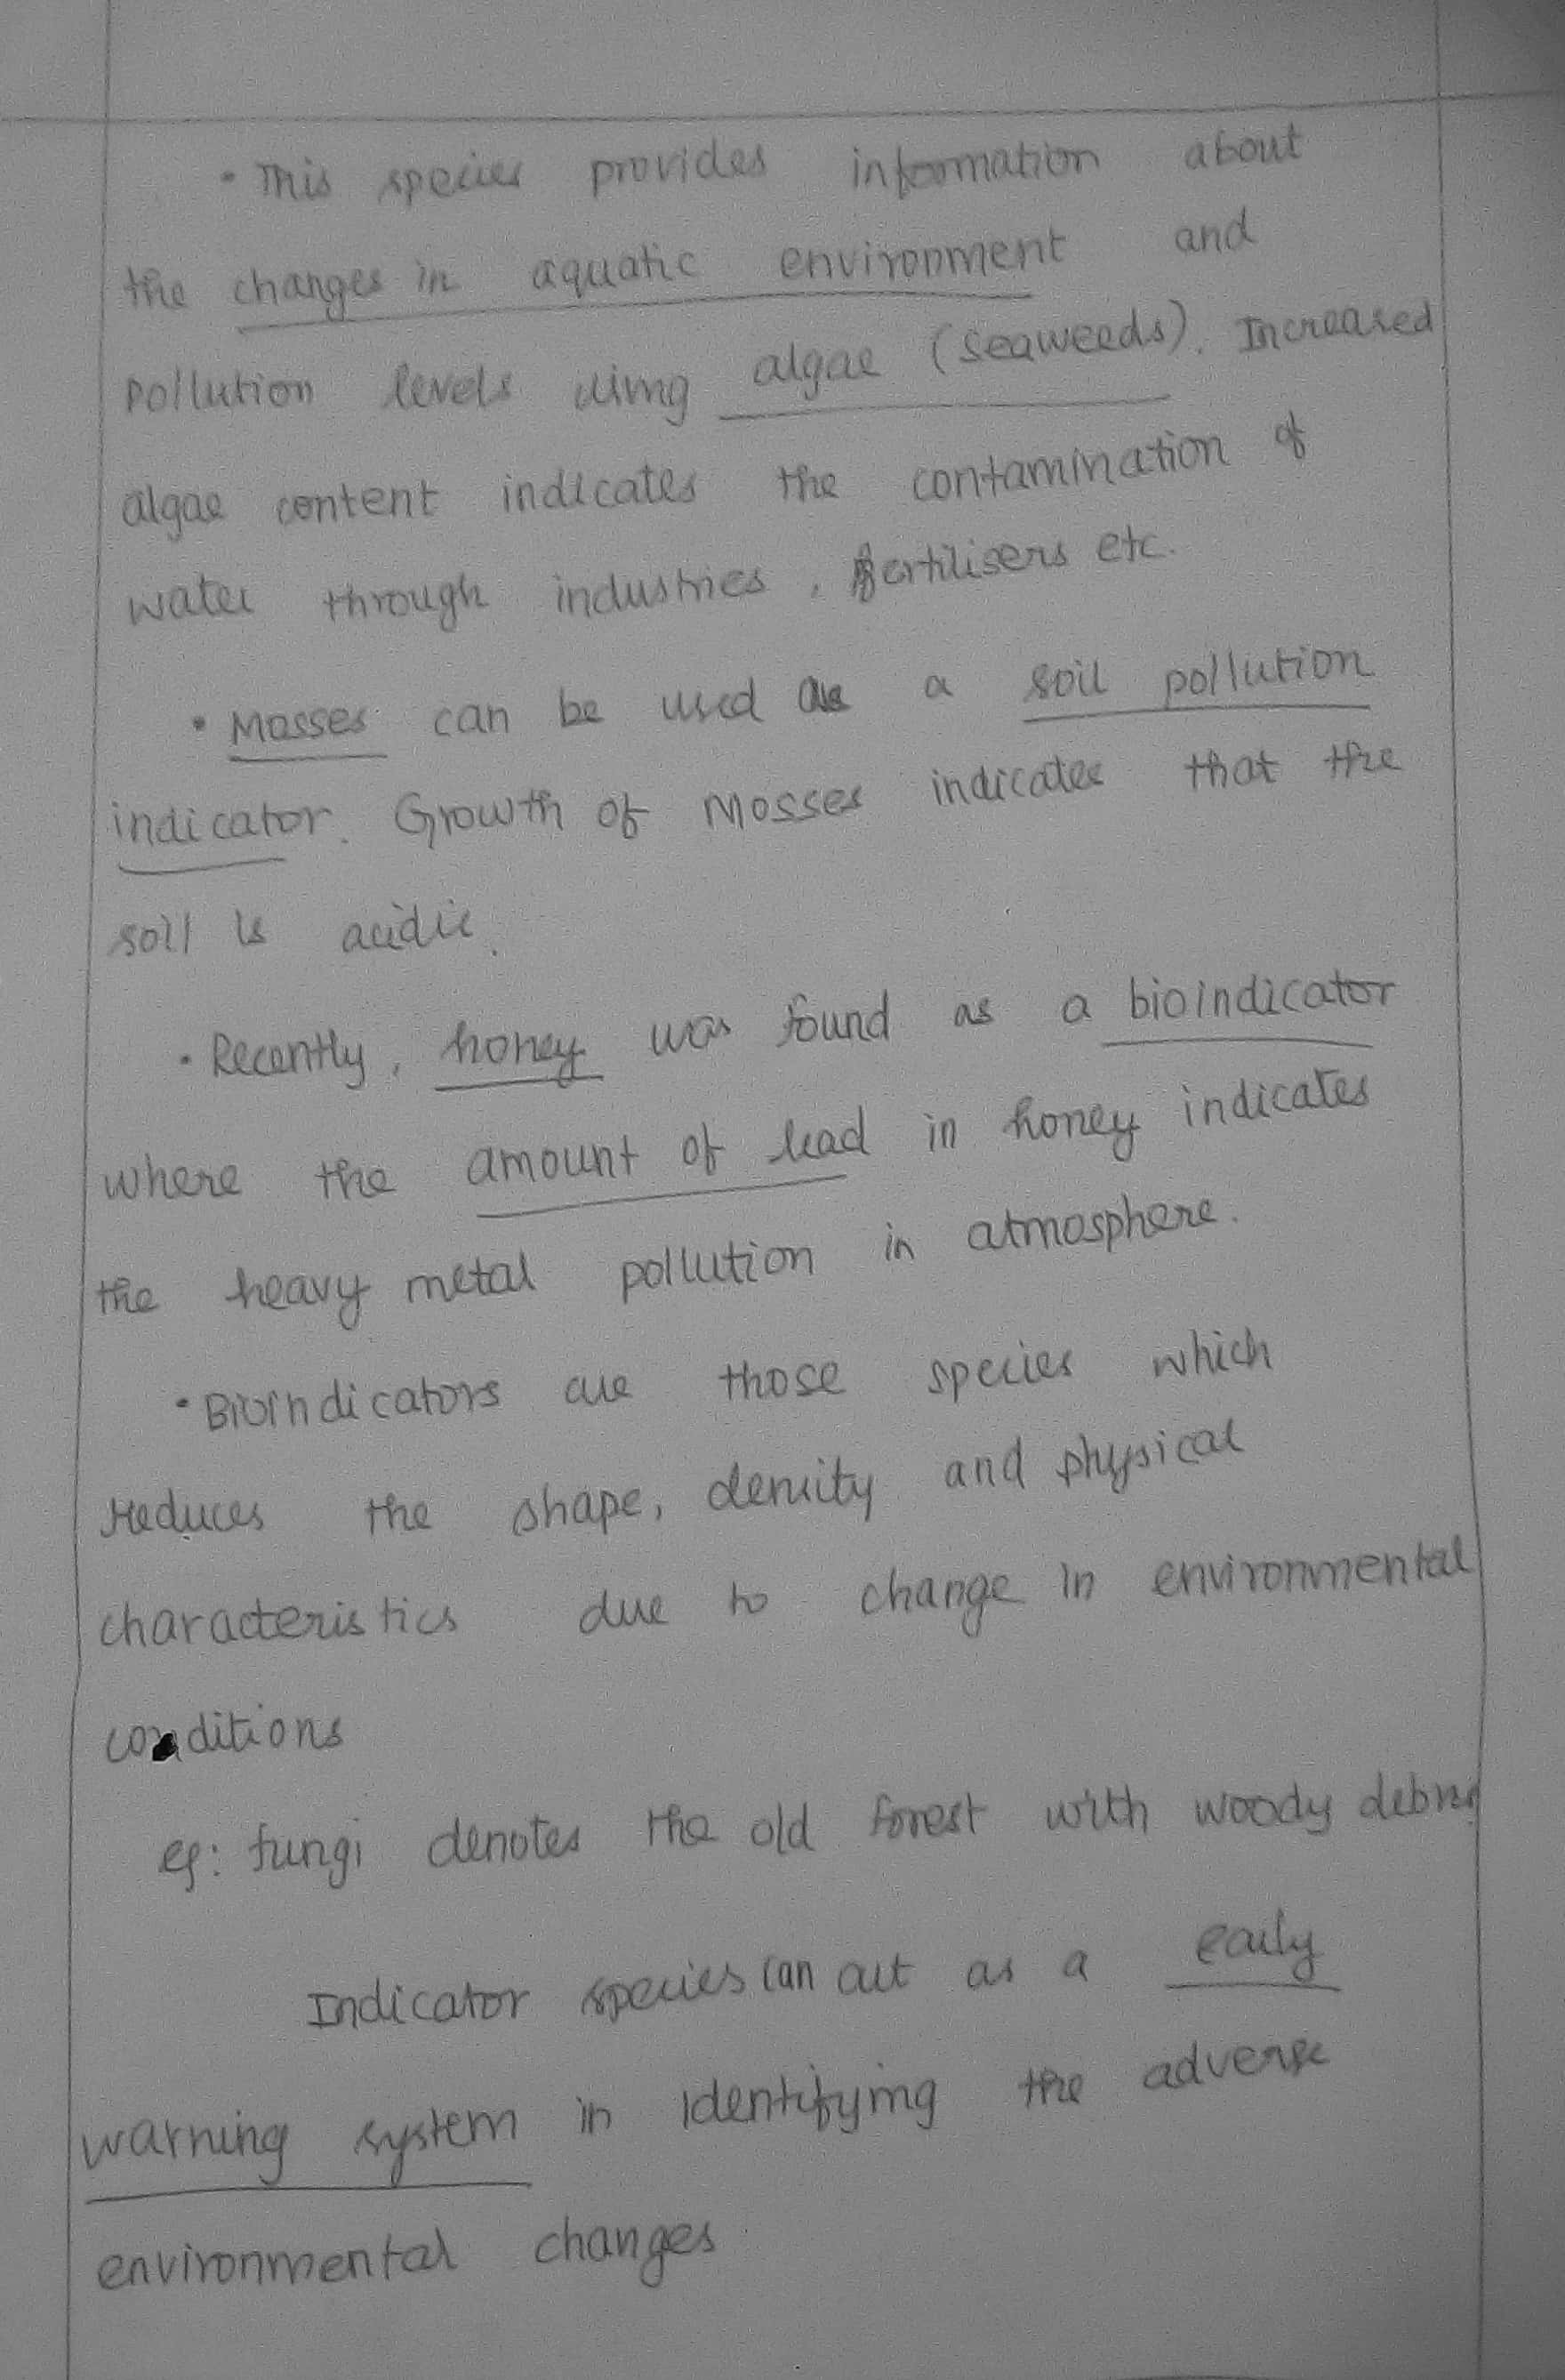 • This species provides information about
the changes in aquatic environment and
pollution levels using algae (seaweeds). Increased
algae content indicates the contamination of
water through industries, fertilisers etc.
• Mosses can be used as a soil pollution
indicator. Growth of Mosses indicates that the
soil is acidic.
• Recently, honey was found as a bioindicator
where the amount of lead in honey indicates
the heavy metal pollution in atmosphere.
• Bioindicators are those species which
reduces the shape, density and physical
characteristics due to change in environmental
conditions
eg: fungi denotes the old forest with woody debris
Indicator species can act as a early
warning system in identifying the adverse
environmental changes